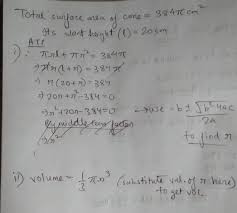 Total surface area of cone = 384πcm²
Its slant height (l) = 20cm
ATS
i) ∴ πrl + πr² = 384π
⇒ πr(l+r) = 384π
⇒ r(20+r) = 384
⇒ 20r + r² - 384 = 0
⇒ r² + 20r - 384 = 0
By middle term factor
2r²
→ use = b ± √b² 4ac
2A
to find r
ii) volume = 1/3 πr³ (substitute val. of r here)
to get vol.